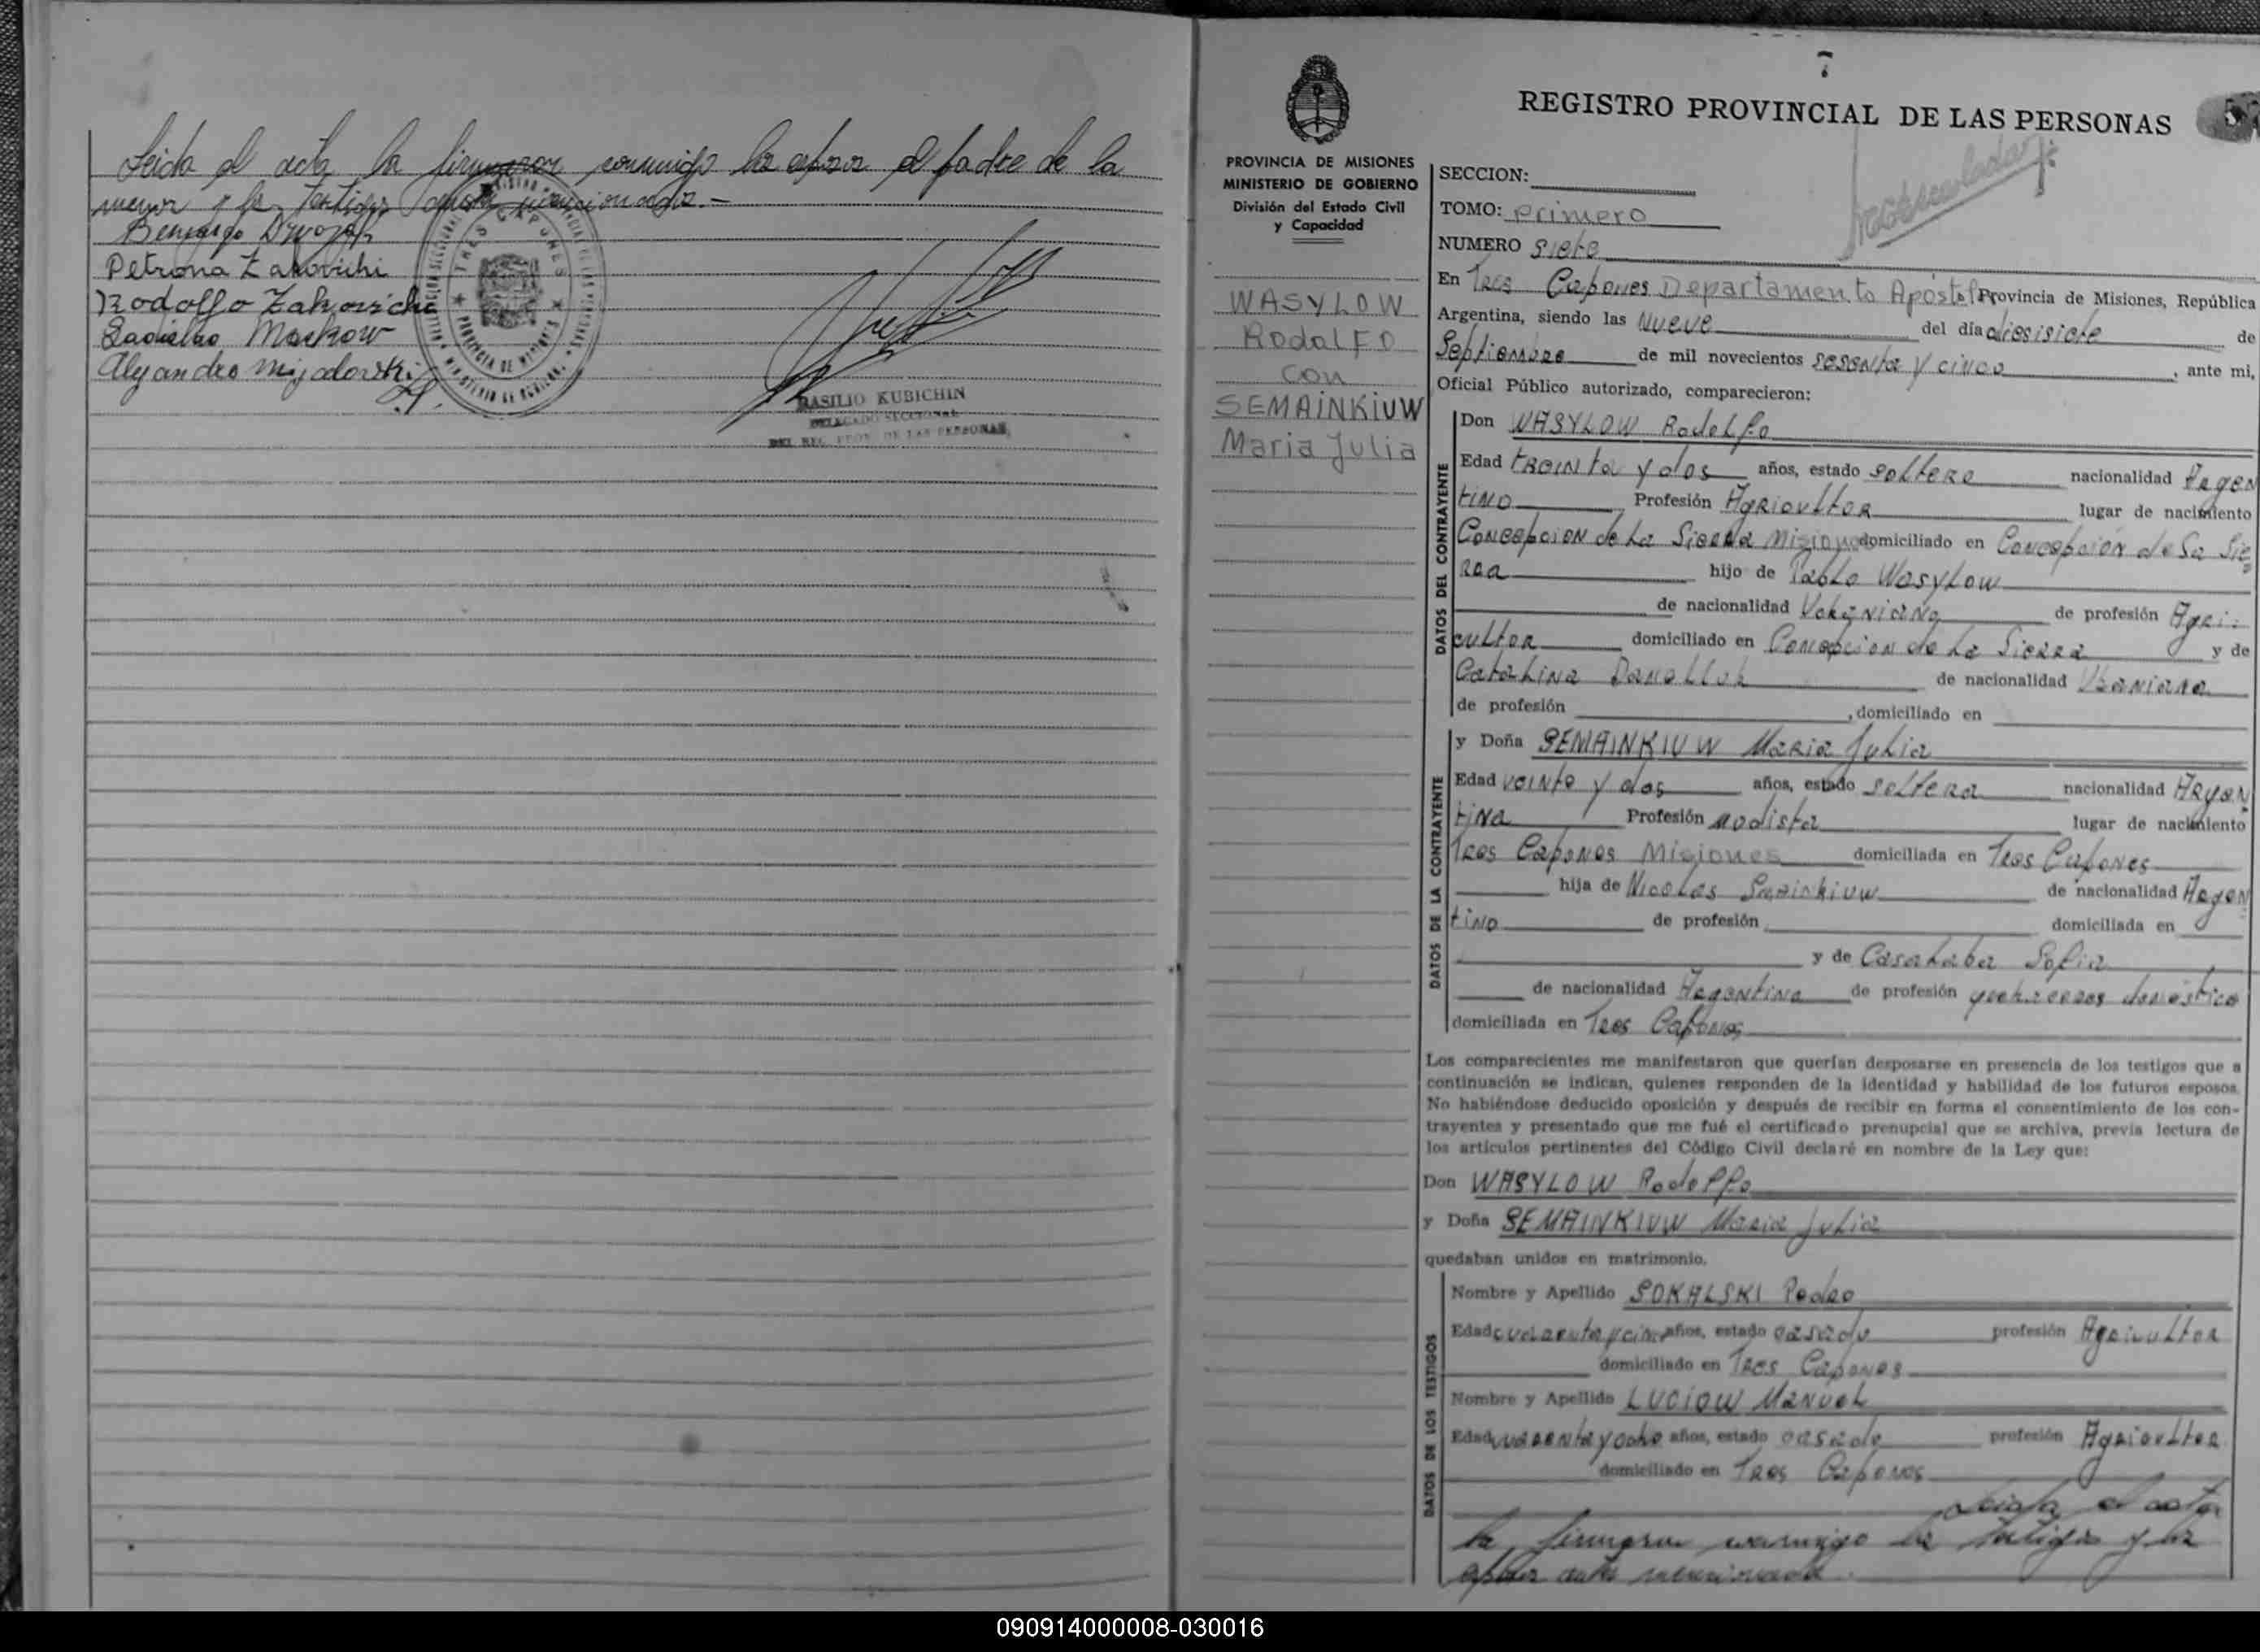 Leida el acta la firmaron conmigo los esposos el padre de la
menor y los testigos antes mencionados.-
Petrona Zakovichi
Rodolfo Zakovichi
Ladislao Markow
Alejandro Mijalovski
TRES CAPONES
PROVINCIA DE MISIONES
BASILIO KUBICHIN
DELEGADO SECCIONAL
DEL REG. PROV. DE LAS PERSONAS
7
REGISTRO PROVINCIAL DE LAS PERSONAS
PROVINCIA DE MISIONES
MINISTERIO DE GOBIERNO
División del Estado Civil
y Capacidad
WASYLOW
RodaLFO
con
SEMAINKIUW
Maria Julia
SECCION:
TOMO: primero
NUMERO siete
En Tres Capones Departamento Apostol Provincia de Misiones, República
Argentina, siendo las Nueve del día diesisiete de
Septiembre de mil novecientos sesenta y cinco, ante mi,
Oficial Público autorizado, comparecieron:
DATOS DEL CONTRAYENTE
Don WASYLOW Rodolfo
Edad treinta y dos años, estado soltero nacionalidad Argen
tino Profesión Agricultor lugar de nacimiento
Concepcion de La Sierra Misiones domiciliado en Concepcion de La Sie
rra hijo de Pablo Wasylow
de nacionalidad Ukraniana de profesión Agri-
cultor domiciliado en Concepcion de La Sierra y de
Catalina de nacionalidad
de profesión , domiciliado en
DATOS DE LA CONTRAYENTE
y Doña SEMAINKIUW Maria Julia
Edad veinte y dos años, estado soltera nacionalidad Argen
tina Profesión modista lugar de nacimiento
Tres Capones Misiones domiciliada en Tres Capones
hija de Nicolas Semainkiuw de nacionalidad Argen
tino de profesión domiciliada en
y de Casaraba Sofia
de nacionalidad Argentina de profesión domestico
domiciliada en Tres Capones
Los comparecientes me manifestaron que querían desposarse en presencia de los testigos que a
continuación se indican, quienes responden de la identidad y habilidad de los futuros esposos.
No habiéndose deducido oposición y después de recibir en forma el consentimiento de los con-
trayentes y presentado que me fué el certificado prenupcial que se archiva, previa lectura de
los artículos pertinentes del Código Civil declaré en nombre de la Ley que:
Don WASYLOW Rodolfo
y Doña SEMAINKIUW Maria Julia
quedaban unidos en matrimonio.
DATOS DE LOS TESTIGOS
Nombre y Apellido SOKALSKI Pedro
Edad cuarenta y cinco años, estado casado profesión Agricultor
domiciliado en Tres Capones
Nombre y Apellido LUCIOW Manuel
Edad cuarenta y ocho años, estado casado profesión Agricultor
domiciliado en Tres Capones
Leida el acta
la firmaron conmigo los testigos y los
esposos antes mencionados.
090914000008-030016